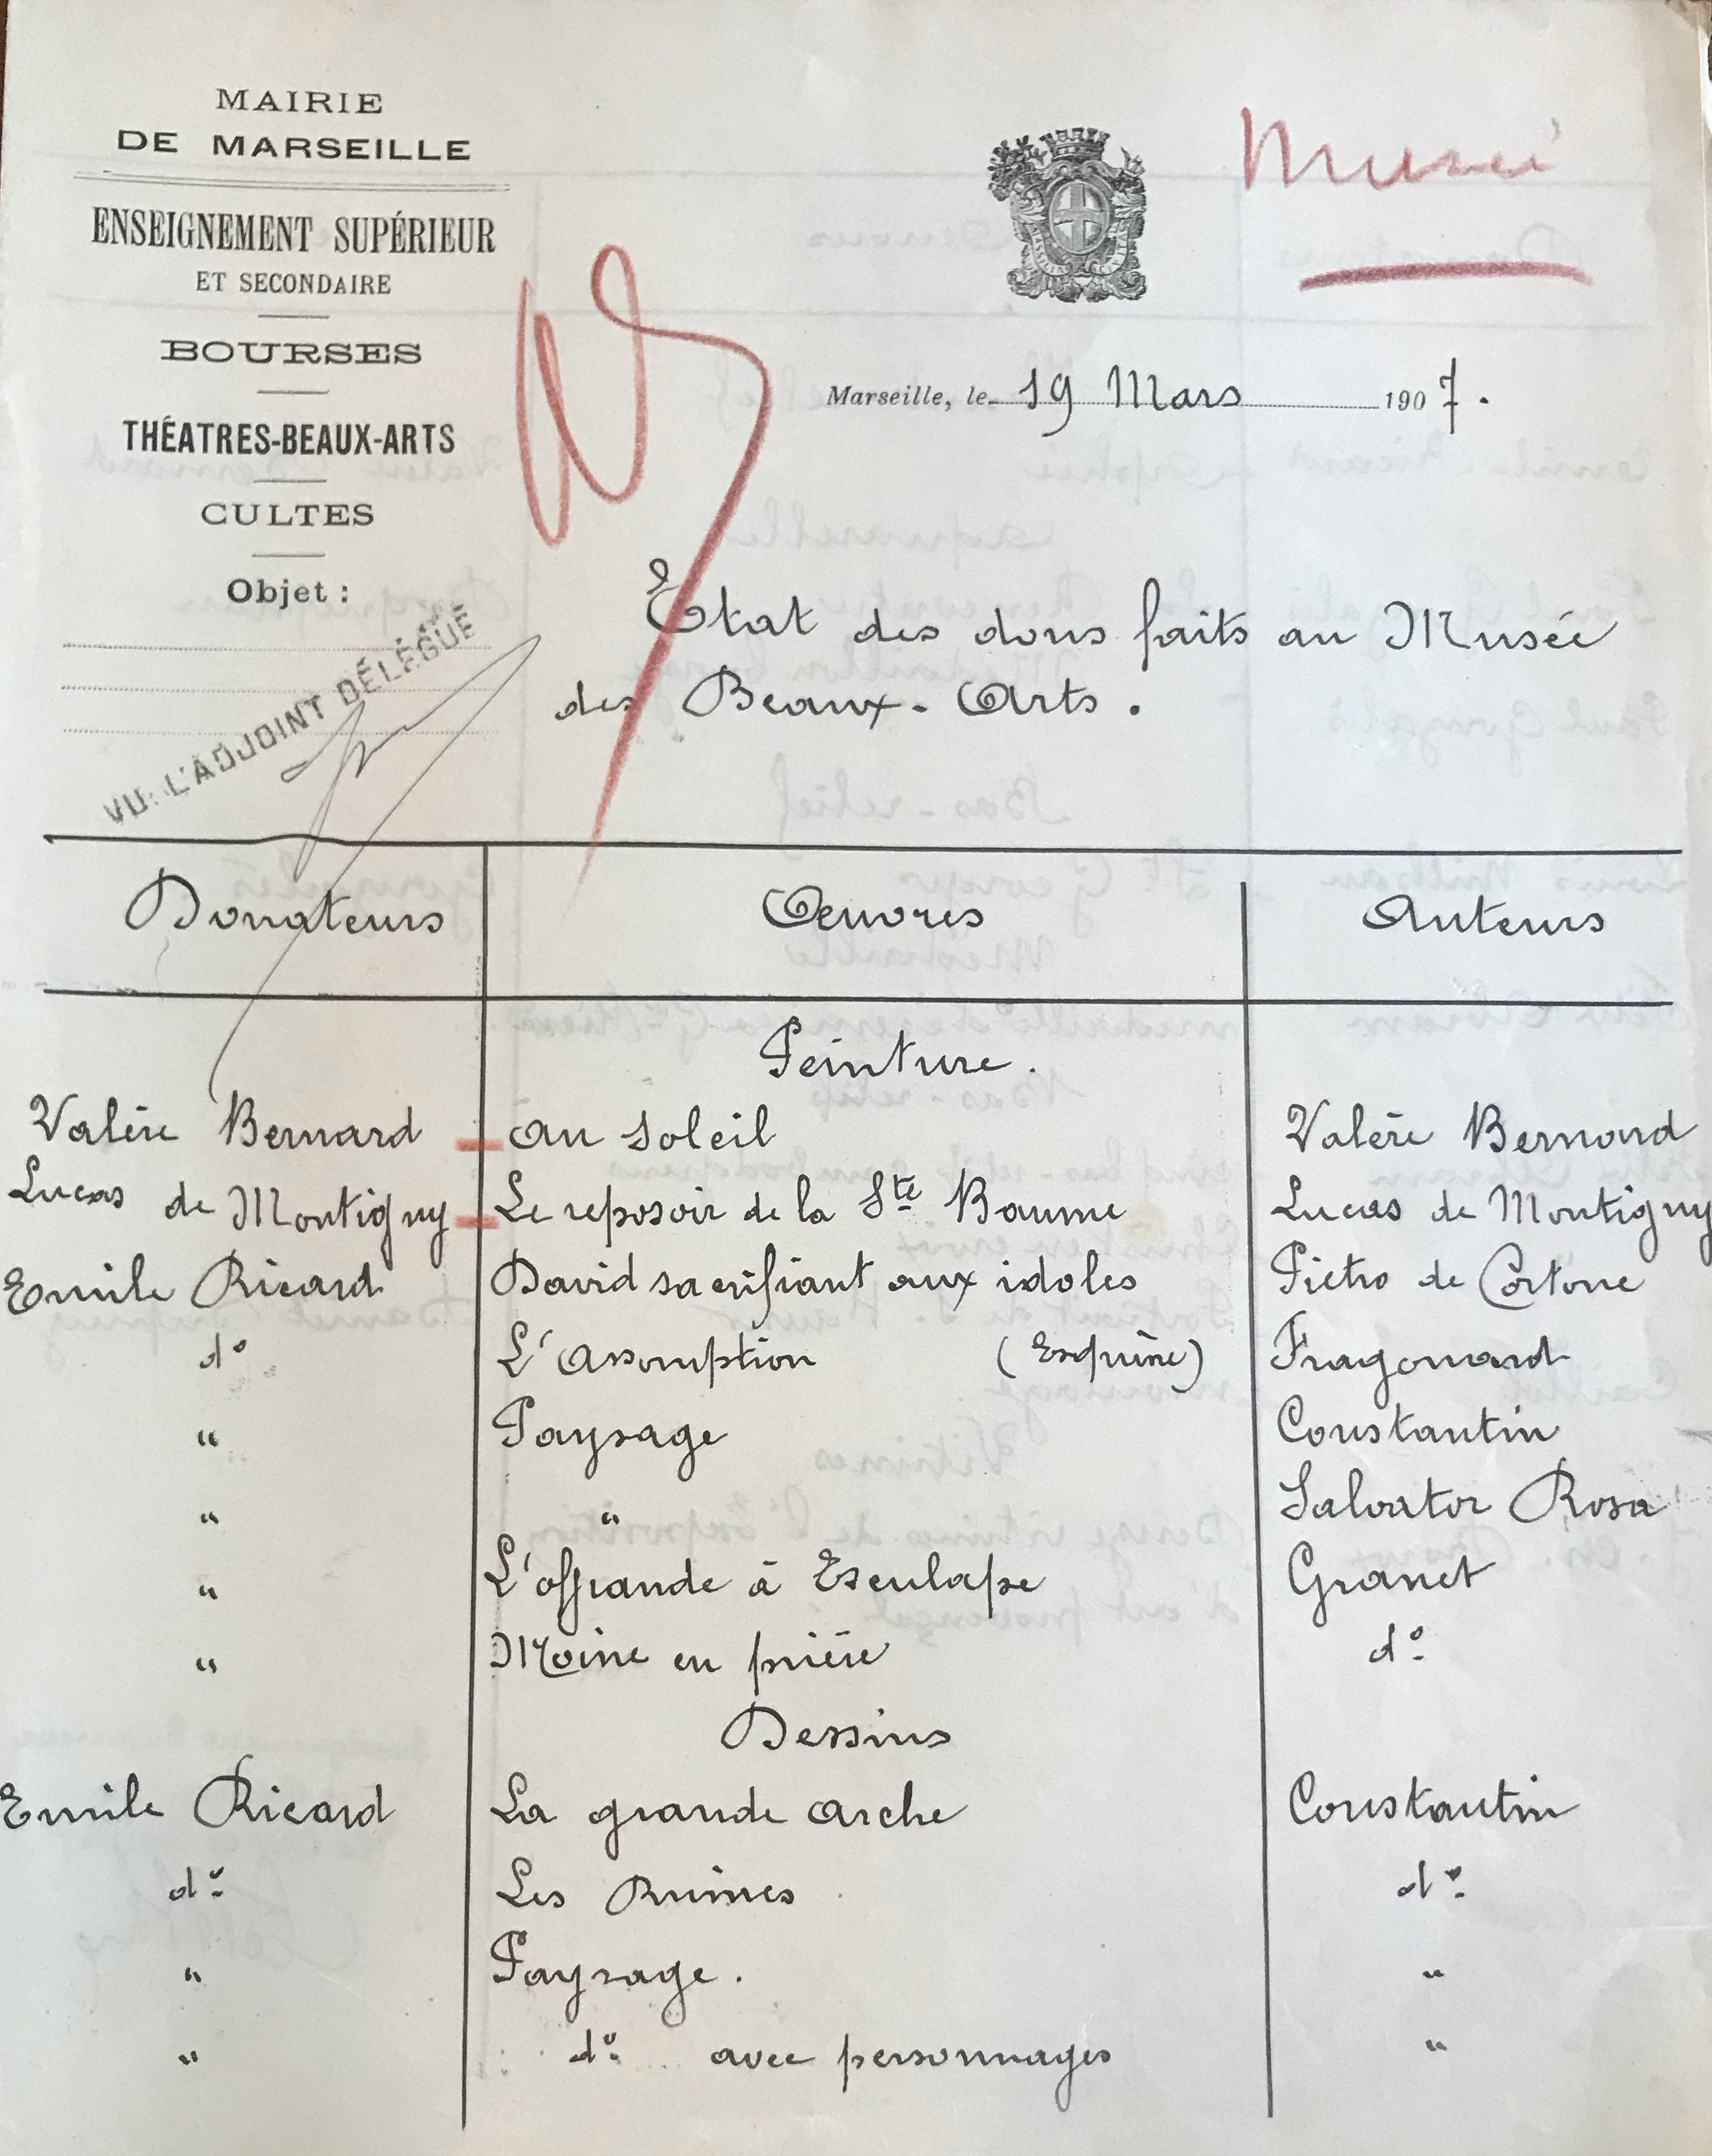 MAIRIE
DE MARSEILLE
ENSEIGNEMENT SUPÉRIEUR
ET SECONDAIRE
BOURSES
THÉATRES-BEAUX-ARTS
CULTES
Objet :
VU: L'ADJOINT DÉLÉGUÉ
Musée
Marseille, le 19 Mars 1907.
Etat des dons faits au Musée
des Beaux-Arts.
Donateurs Oeuvres Auteurs
Peinture.
Valère Bernard Au Soleil Valère Bernard
Lucas de Montigny Le reposoir de la Ste Baume Lucas de Montigny
Emile Ricard David sacrifiant aux idoles Piétro de Cortone
do L'Assomption (Esquisse) Fragonard
" Paysage Constantin
" " Salvator Rosa
" L'offrande à Esculape Granet
" Moine en prière do
Dessins
Emile Ricard La grande arche Constantin
do Les Ruines do
" Paysage. "
" do avec personnages "